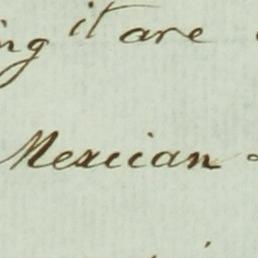 ing it are
Mexican